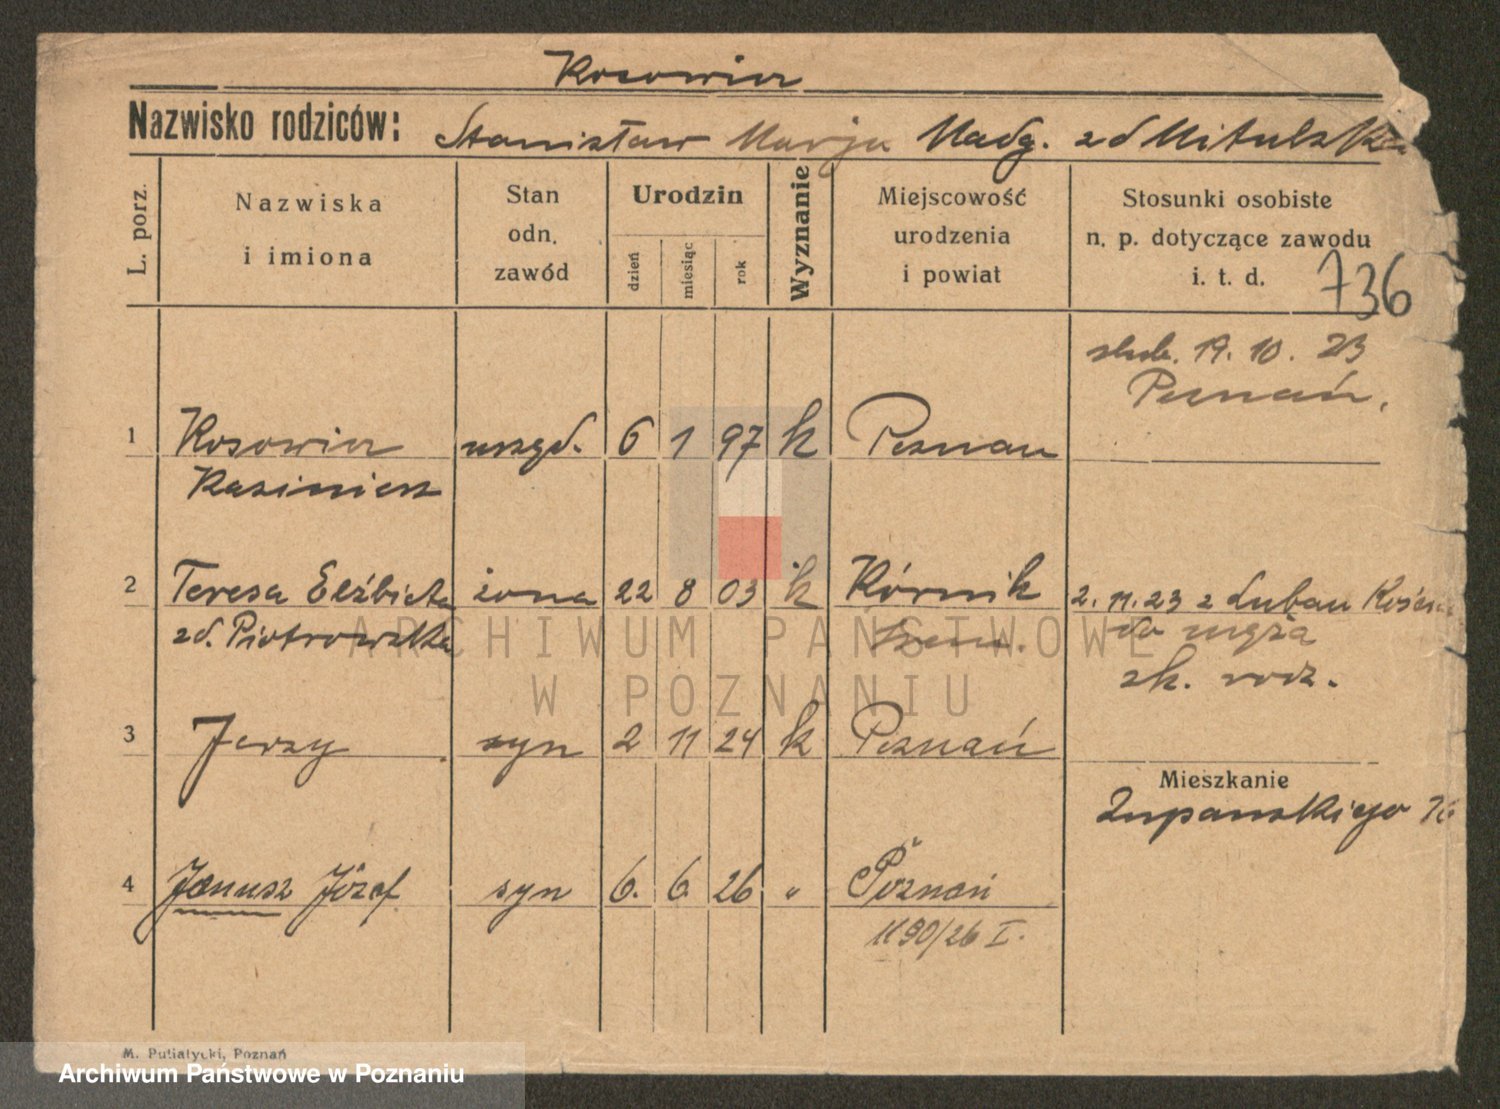 Kosowicz
Nazwisko rodziców: Stanisław Marja Magdg. zd Mitulska
L. porz.
Nazwiska i imiona
Stan odn. zawód
Urodzin
dzień miesiąc rok
Wyznanie
Miejscowość urodzenia i powiat
Stosunki osobiste n. p. dotyczące zawodu i. t. d.
736
ślub. 19. 10. 23
Poznań.
1 Kosowicz urzęd. 6 1 97 k Poznań
Kazimierz
2 Teresa Elżbieta żona 22 8 03 k Kórnik 2. 11. 23 z Lubań
zd. Piotrowska Śrem. do męża
zk. rodz.
3 Jerzy syn 2 11 24 k Poznań
Mieszkanie
Żupańskiego
4 Janusz Józef syn 6. 6. 26 " Poznań
1190/26 I.
M. Putiatycki, Poznań
ARCHIWUM PAŃSTWOWE
W POZNANIU
Archiwum Państwowe w Poznaniu